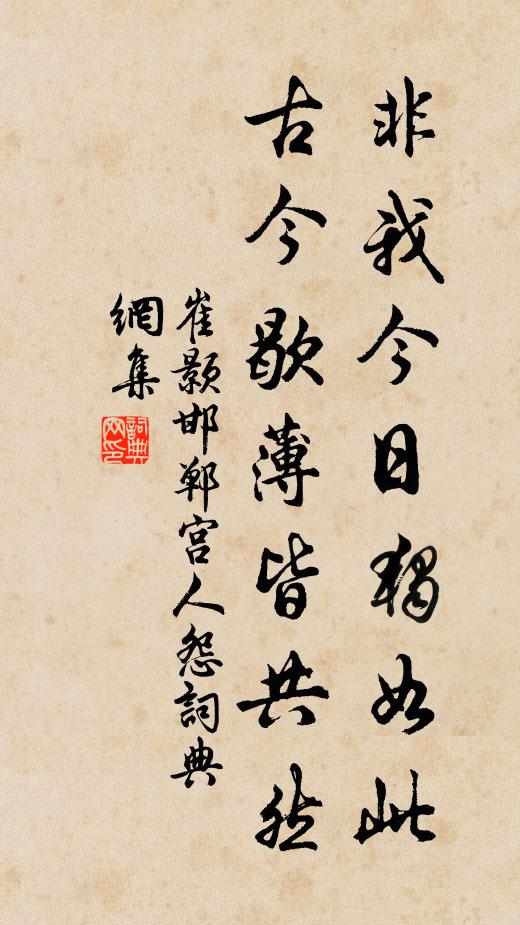 非我今日獨如此
古今歇薄皆共然
崔颢邯郸宫人怨詞典
網集
詞典
网印